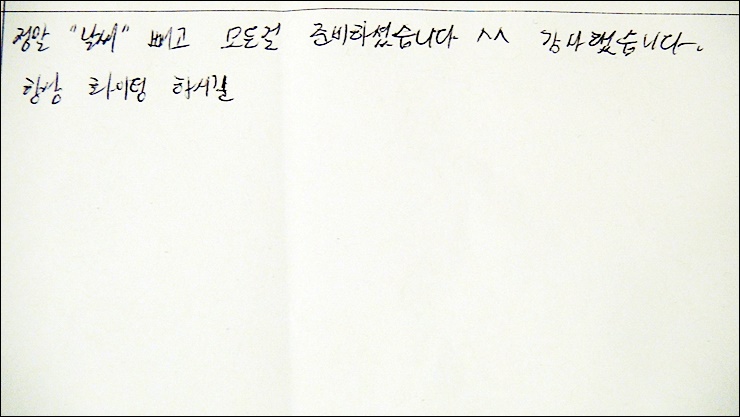 정말 "날씨" 빼고 모든걸 준비하셨습니다 ^^ 감사했습니다.
항상 화이팅 하시길